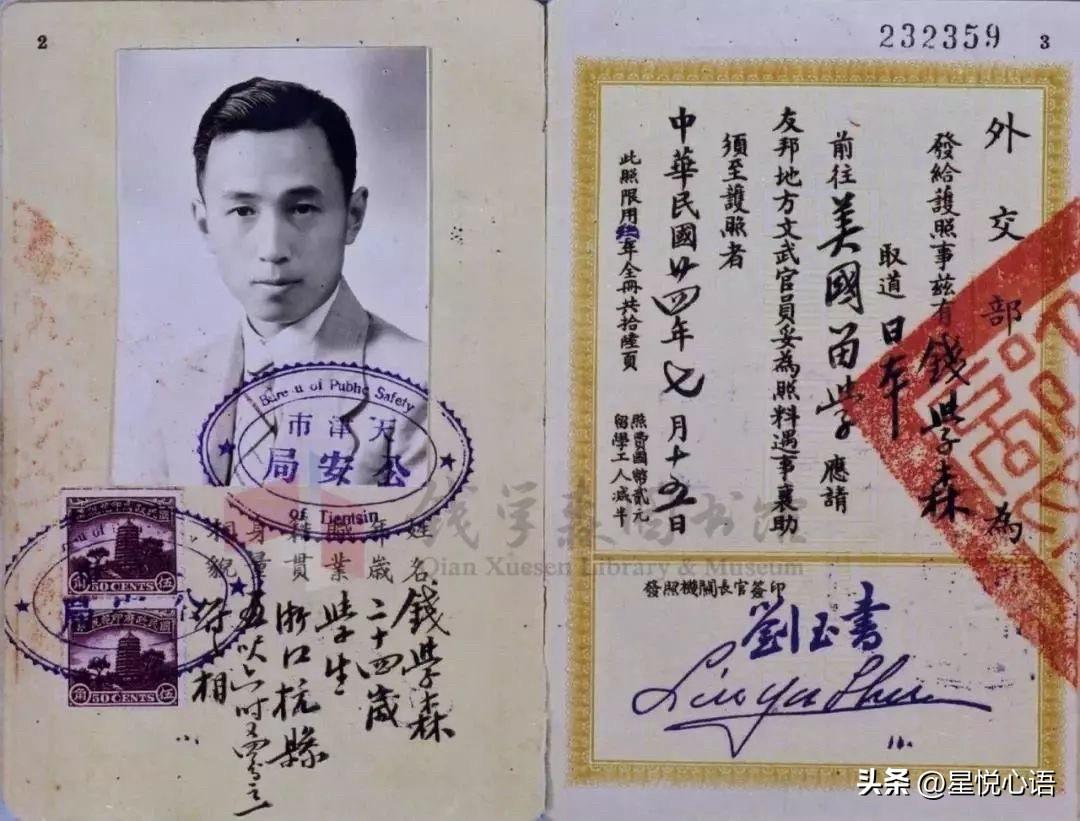 2
Bureau of Public Safety
天津市
公安局
of Tientsin
50 CENTS
50 CENTS
姓名 錢學森
年歲 二十四歲
職業 學生
籍貫 浙江杭縣
身量 五尺六吋又四分之一
相貌 符相
錢学森图书馆
Qian Xuesen Library & Museum
232359
3
外交部為
發給護照事茲有錢學森
取道日本
前往美國留學應請
友邦地方文武官員妥為照料遇事襄助
須至護照者
中華民國廿四年七月十五日
此照限用年全冊共拾陸頁
照費國幣貳元
留學工人減半
發照機關長官簽印
劉玉書
Liu Yu Shu
头条 @星悦心语